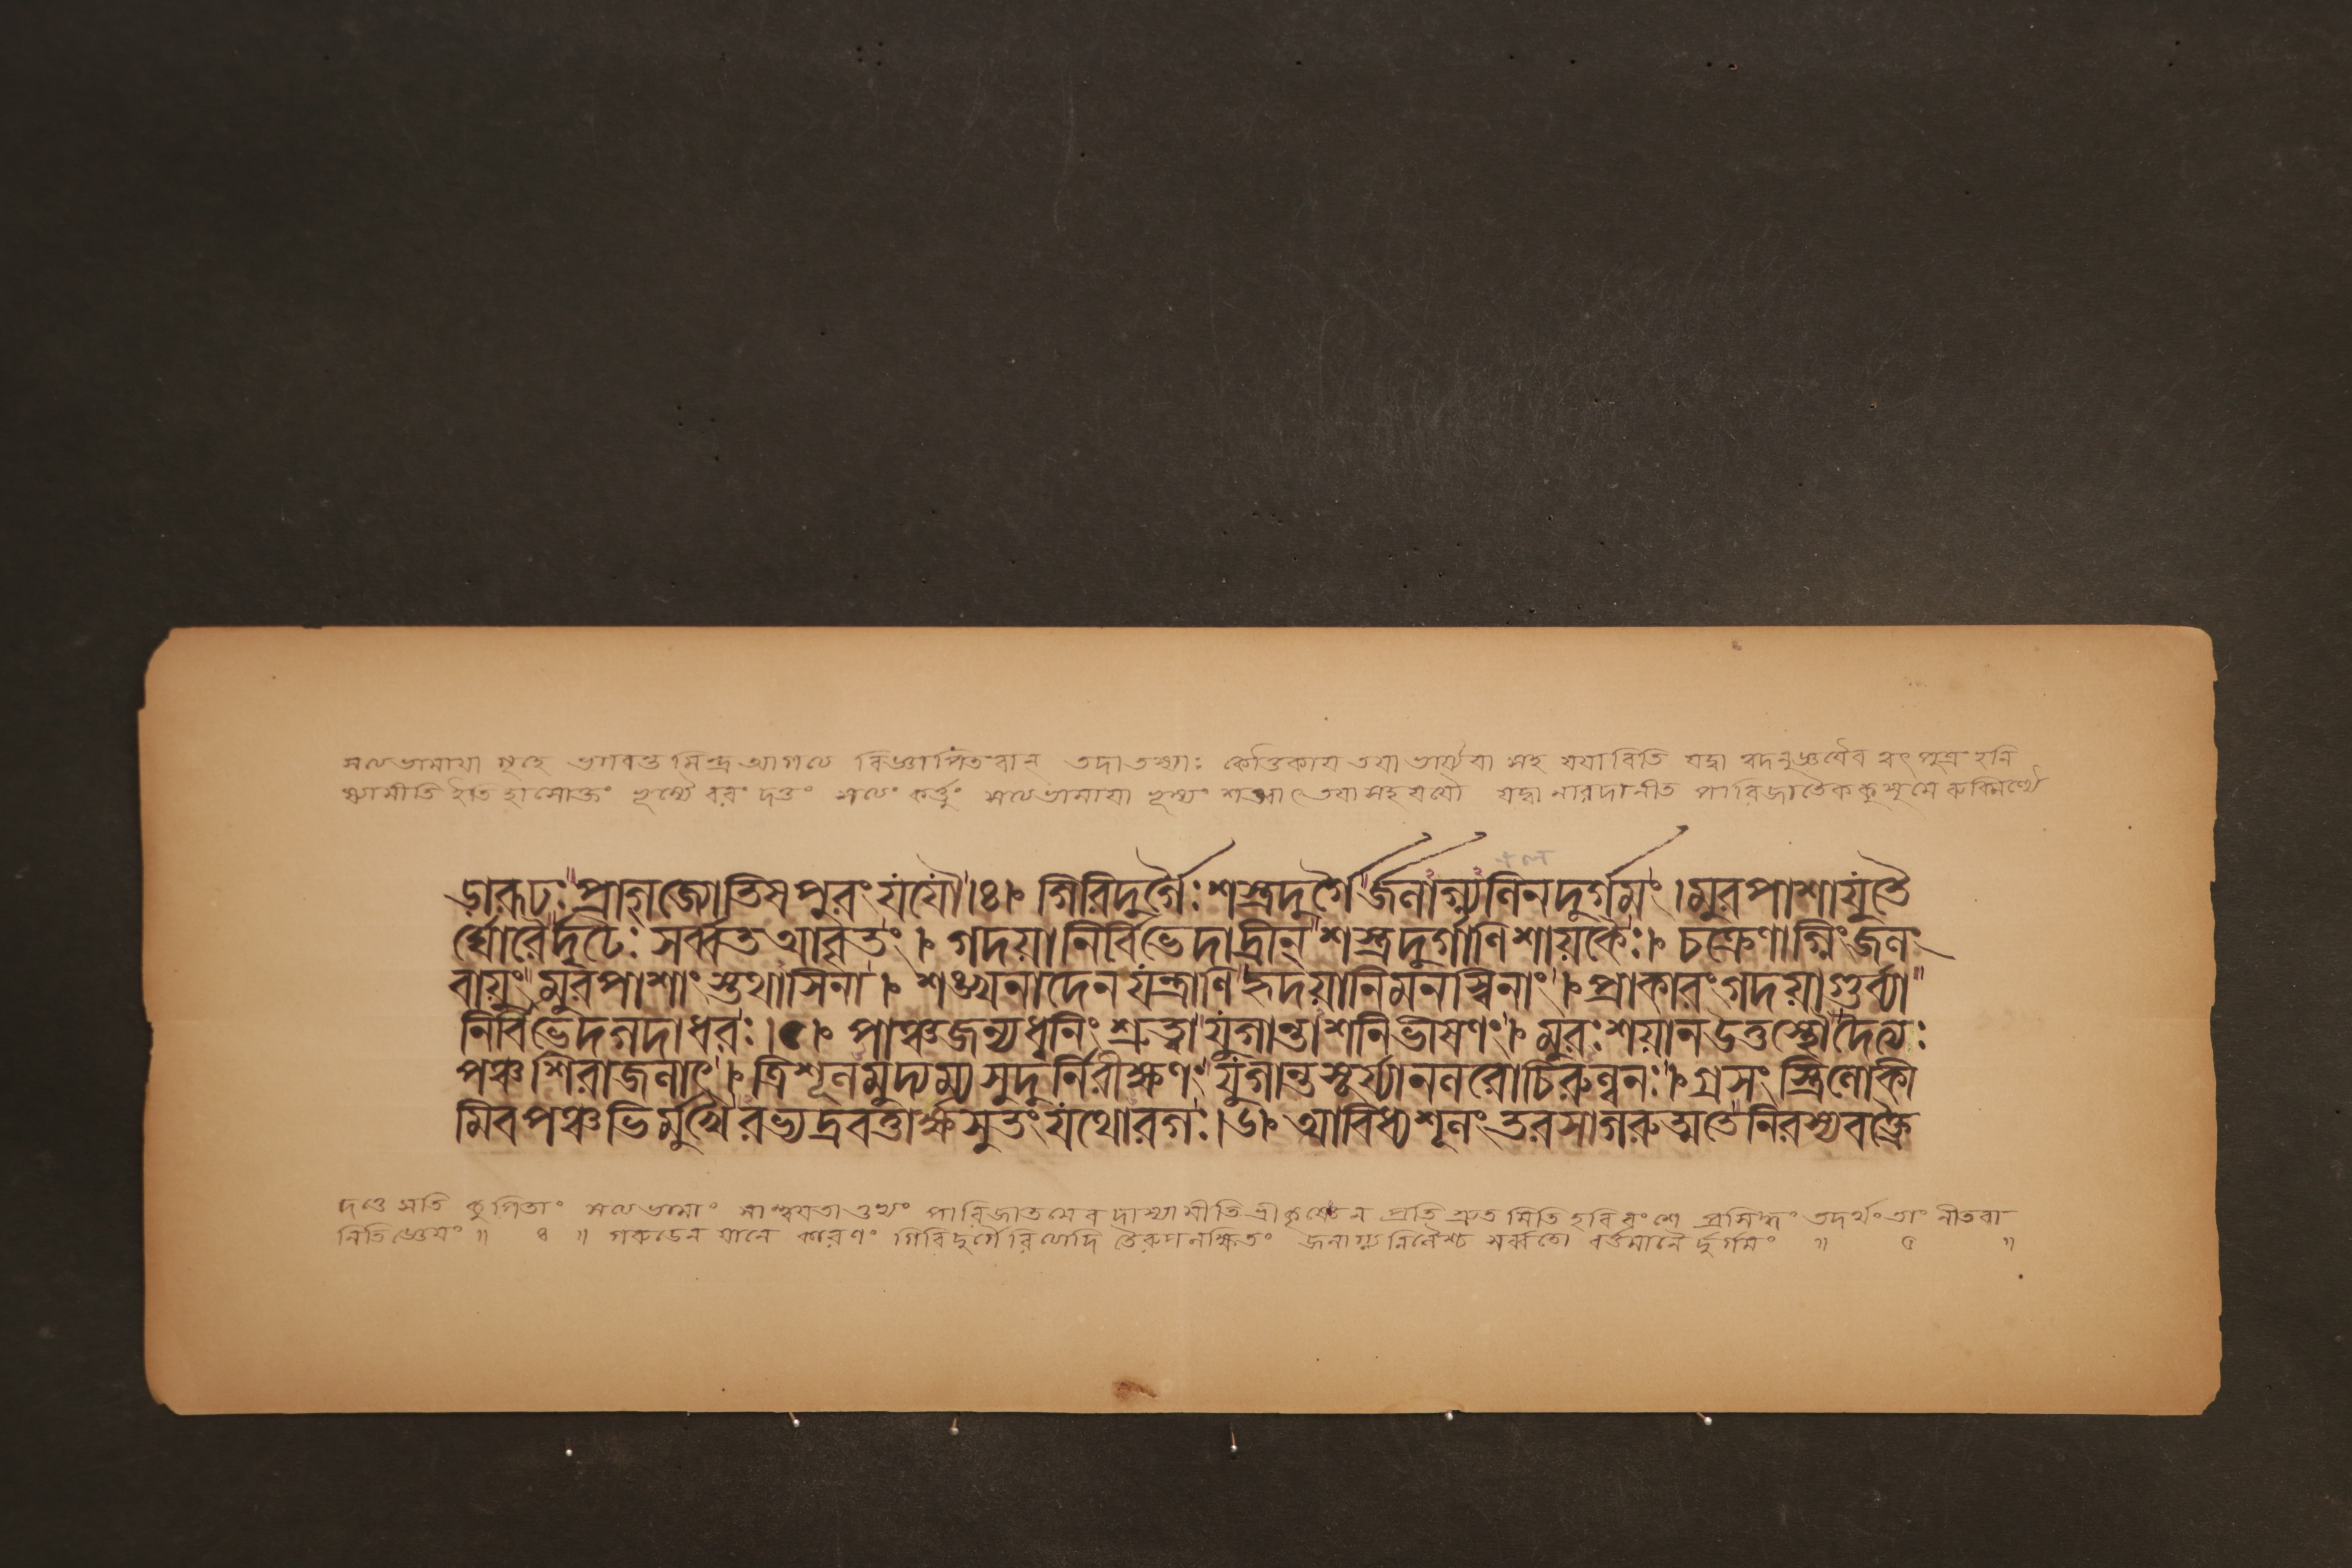 সত্যভামায়া গৃহে ভগবন্তমিন্দ্র আগত্য বিজ্ঞাপিতবান্ তদা তস্যাঃ কৌতুকায় তয়া ভার্য্যয়া সহ যযাবিতি যদ্বা ত্বদনুজ্ঞয়ৈব ত্বৎ পুত্রং হনি
ষ্যামীতি
ড়ারূঢ়ঃ প্রাগ্জ্যোতিষপুরং যযৌ ।৪। গিরিদুর্গৈঃ শস্ত্রদুর্গৈর্জলাগ্ন্যনিলদুর্গমং । মুরপাশাযুতৈ
র্ঘোরৈর্দৃঢৈঃ সর্ব্বত আবৃতং । গদয়া নির্বিভেদাদ্রীন্ শস্ত্রদুর্গাণি শায়কৈঃ । চক্রেণাগ্নিং জলং
বায়ুং মুরপাশাংস্তথাসিনা । শঙ্খনাদেন যন্ত্রাণি হৃদয়ানি মনস্বিনাং । প্রাকারং গদয়া গুর্ব্ব্যা
নির্বিভেদ গদাধরঃ ।৫। পাঞ্চজন্যধ্বনিং শ্রুত্বা যুগান্তাশনিভীষণং । মুরঃ শয়ান উত্তস্থৌ দৈত্যঃ
পঞ্চশিরা জলাৎ । ত্রিশূলমুদ্যম্য সুদুর্নিরীক্ষণঃ যুগান্তসূর্য্যানলরোচিরুল্বনঃ । গ্রসংস্ত্রিলোকী
মিব পঞ্চভির্মুখৈরভ্যদ্রবত্তার্ক্ষসুতং যথোরগঃ ।৬। আবিধ্য শূলং তরসা গরুত্মতে নিরস্য বক্ত্রৈ
দত্তে সতি কুপিতাং সত্যভামাং পারিজাতমেব দাস্যামীতি শ্রীকৃষ্ণেন প্রতিশ্রুতমিতি হরিবংশে প্রসিদ্ধং তদর্থং তাং নীতবা
নিতি জ্ঞেয়ং ॥ ৪ ॥ গরুডেন যানে কারণং গিরিদুর্গৈরিত্যাদি তৈরুপলক্ষিতং জলাগ্ন্যনিলৈশ্চ সর্ব্বতো বর্ত্তমানৈ র্দুর্গমং ॥ ৫ ॥